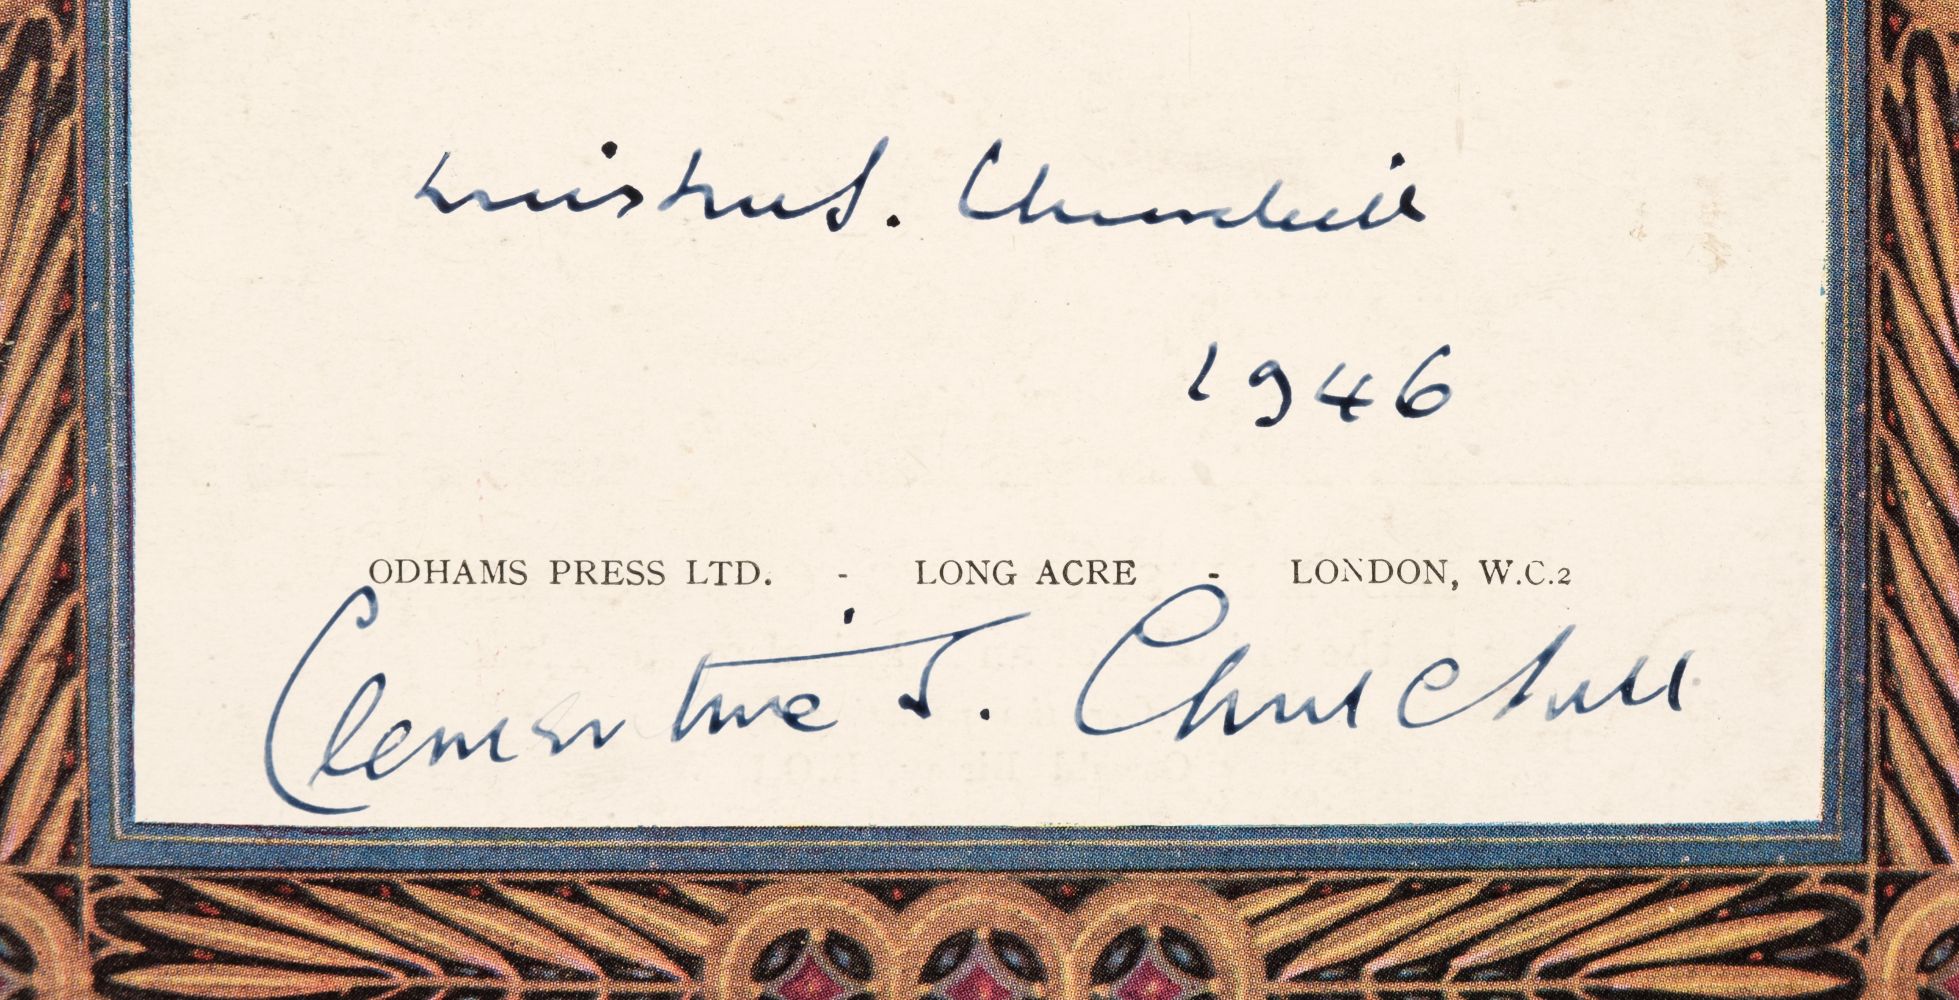 Winston S. Churchill
1946
ODHAMS PRESS LTD. - LONG ACRE - LONDON, W.C.2
Clementine S. Churchill